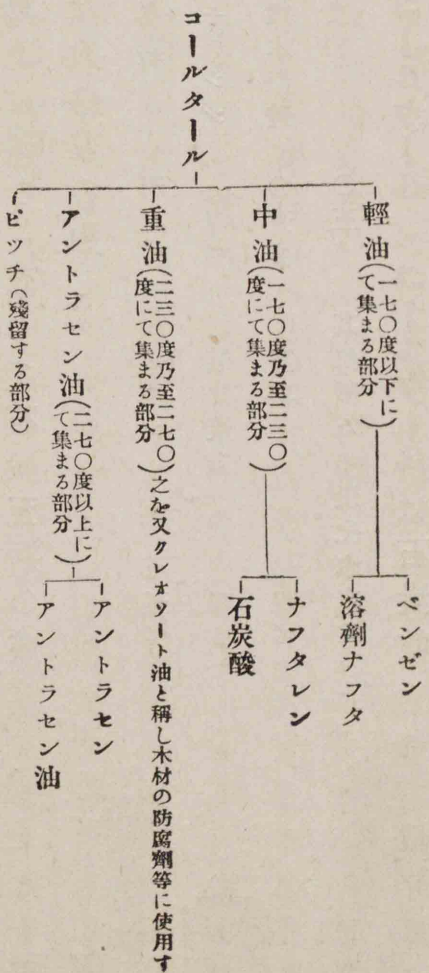 コールタール
輕油(一七〇度以下にて集まる部分)
ベンゼン
溶劑ナフタ
中油(一七〇度乃至二三〇度にて集まる部分)
ナフタレン
石炭酸
重油(二三〇度乃至二七〇度にて集まる部分)之を又クレオソート油と稱し木材の防腐劑等に使用す
アントラセン油(二七〇度以上にて集まる部分)
アントラセン
アントラセン油
ピッチ(殘留する部分)